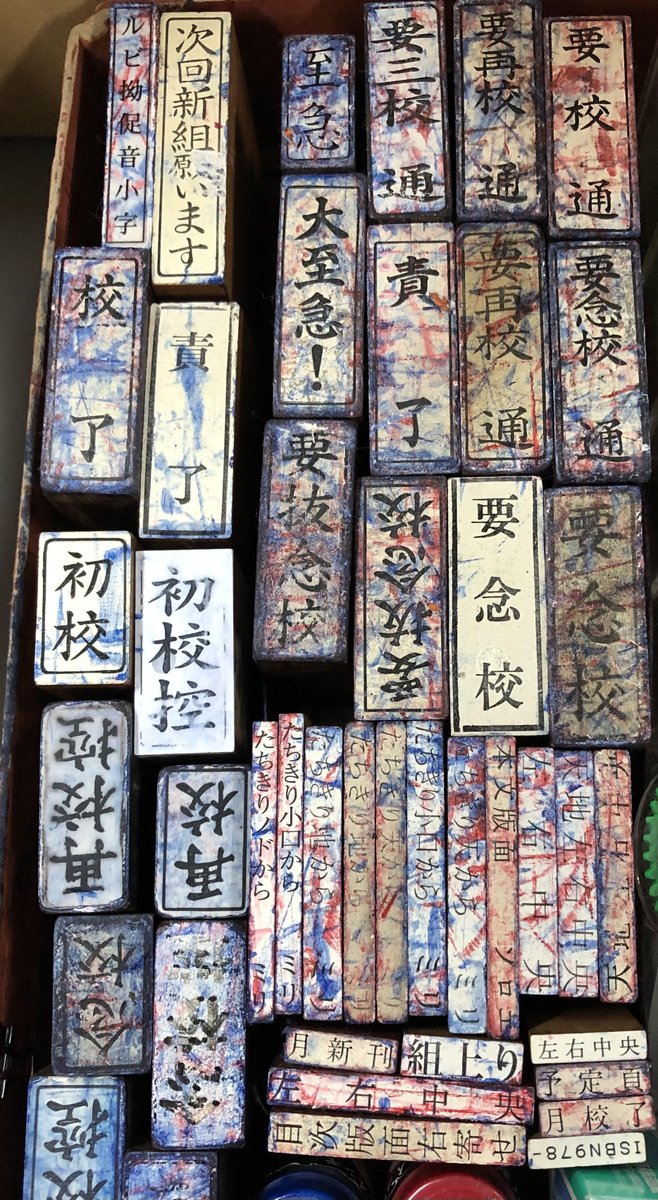 ルビ拗促音小字
次回新組願います
至急
要三校 通
要再校 通
要校 通
大至急！
校了
責了
責了
要再校 通
要念校 通
初校
初校控
要抜念校
要抜念校
要念校
要念校
再校控
再校
念校
たちきりノドから ミリ
たちきり小口から ミリ
たちきり小口から ミリ
本文版面 ソロエ
左右中央
天地左右中央
天地左右中央
月新刊
組上り
左右中央
左右中央
予定頁
月校了
目次版面右寄せ
ISBN978-